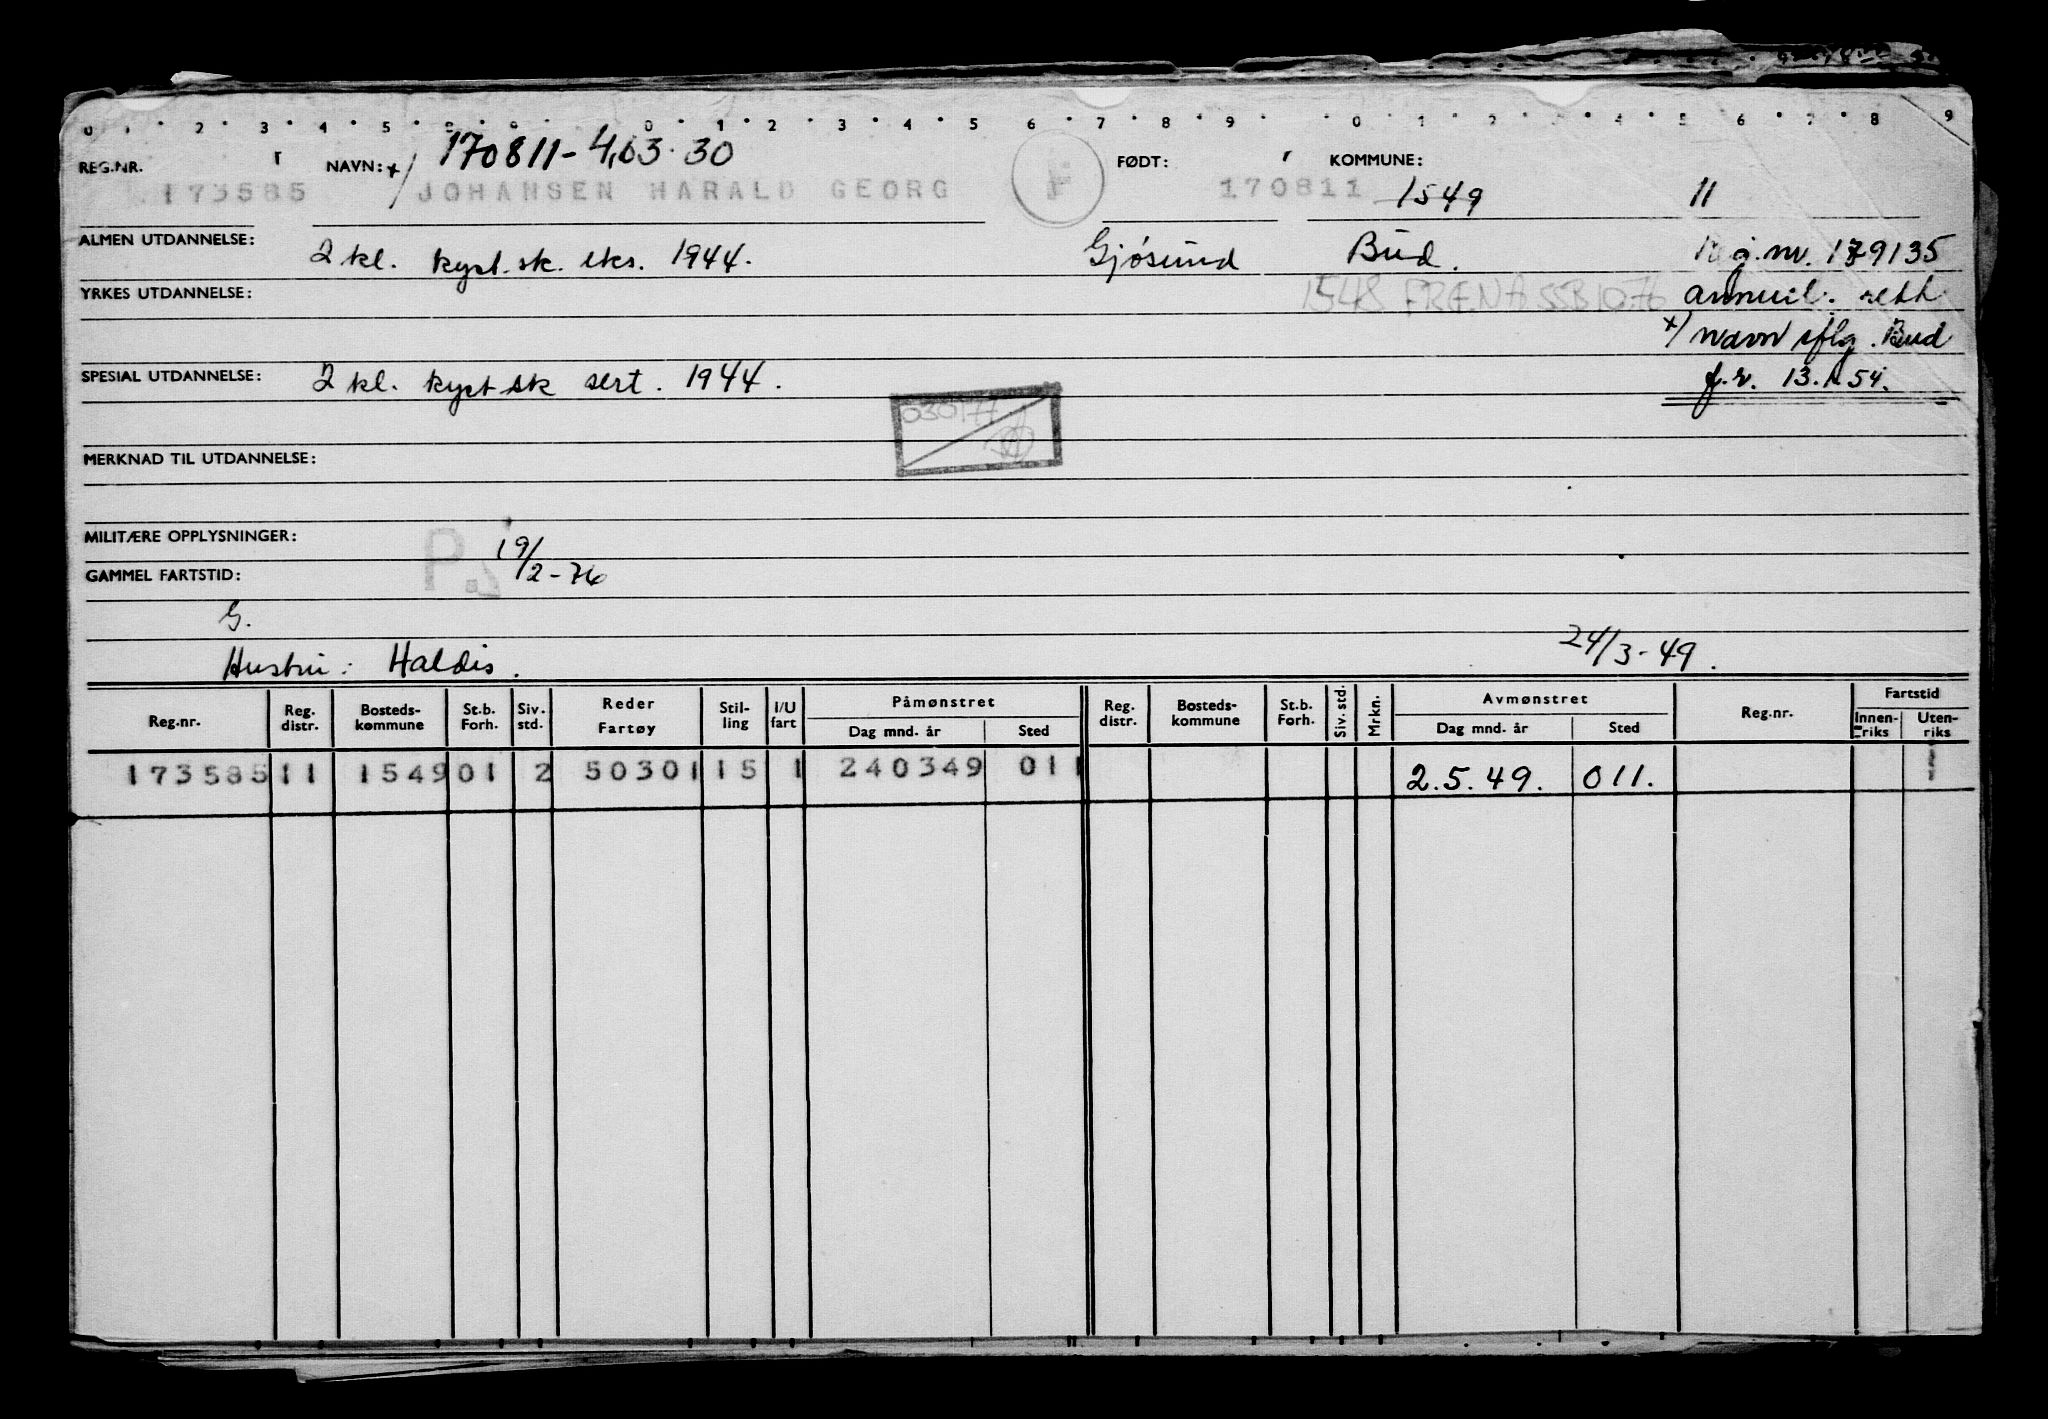 0 1 2 3 4 5 6 8 0 1 2 3 4 5 6 7 8 9 0 1 2 3 4 5 6 7 8 9
170811-40330
REG.NR. NAVN: x/ FØDT: KOMMUNE:
173585 JOHANSEN HARALD GEORG 170811 1549 11
ALMEN UTDANNELSE: 2 kl. kyst.sk. eks. 1944. Gjøsund Bud. Reg.nr. 179135
YRKES UTDANNELSE: 1548 FRÆNA SSB 10.76 annul. rett
x/ Navn iflg. Bud
SPESIAL UTDANNELSE: 2 kl. kyst sk sert. 1944. f.r. 13.1.54.
030177
MERKNAD TIL UTDANNELSE:
MILITÆRE OPPLYSNINGER: P. 19/2-76
GAMMEL FARTSTID:
G.
Hustru: Haldis. 24/3-49.
Reg.nr. Reg. distr. Bosteds-kommune St.b. Forh. Siv. std. Reder Fartøy Stil-ling I/U fart Påmønstret Dag mnd. år Sted Reg. distr. Bosteds-kommune St.b. Forh. Siv. std. Mrkn. Avmønstret Dag mnd. år Sted Reg.nr. Fartstid Innen-riks Uten-riks
173585 11 1549 01 2 50301 15 1 240349 011 2.5.49. 011. 1